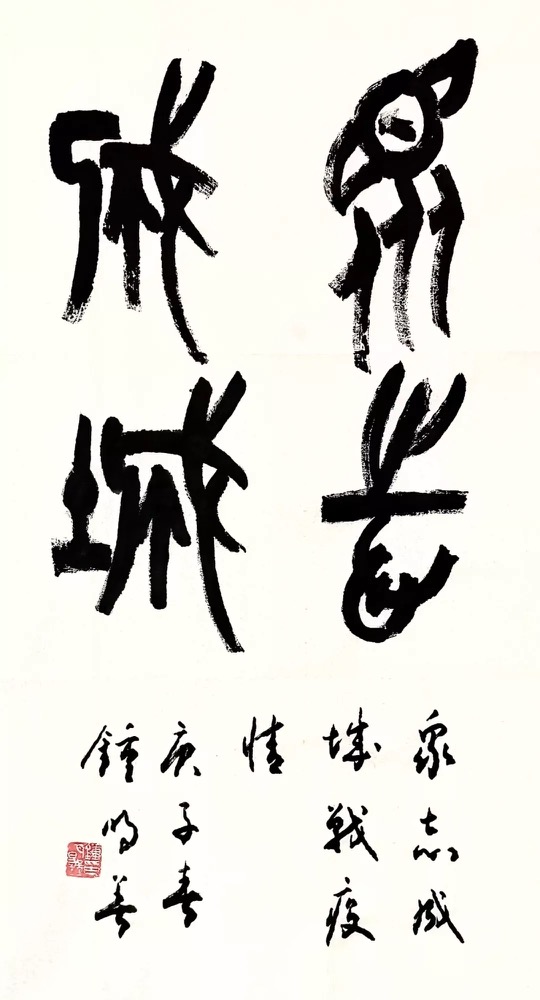 眾志
成城
衆志成
城戰疫
情
庚子春
鍾明善